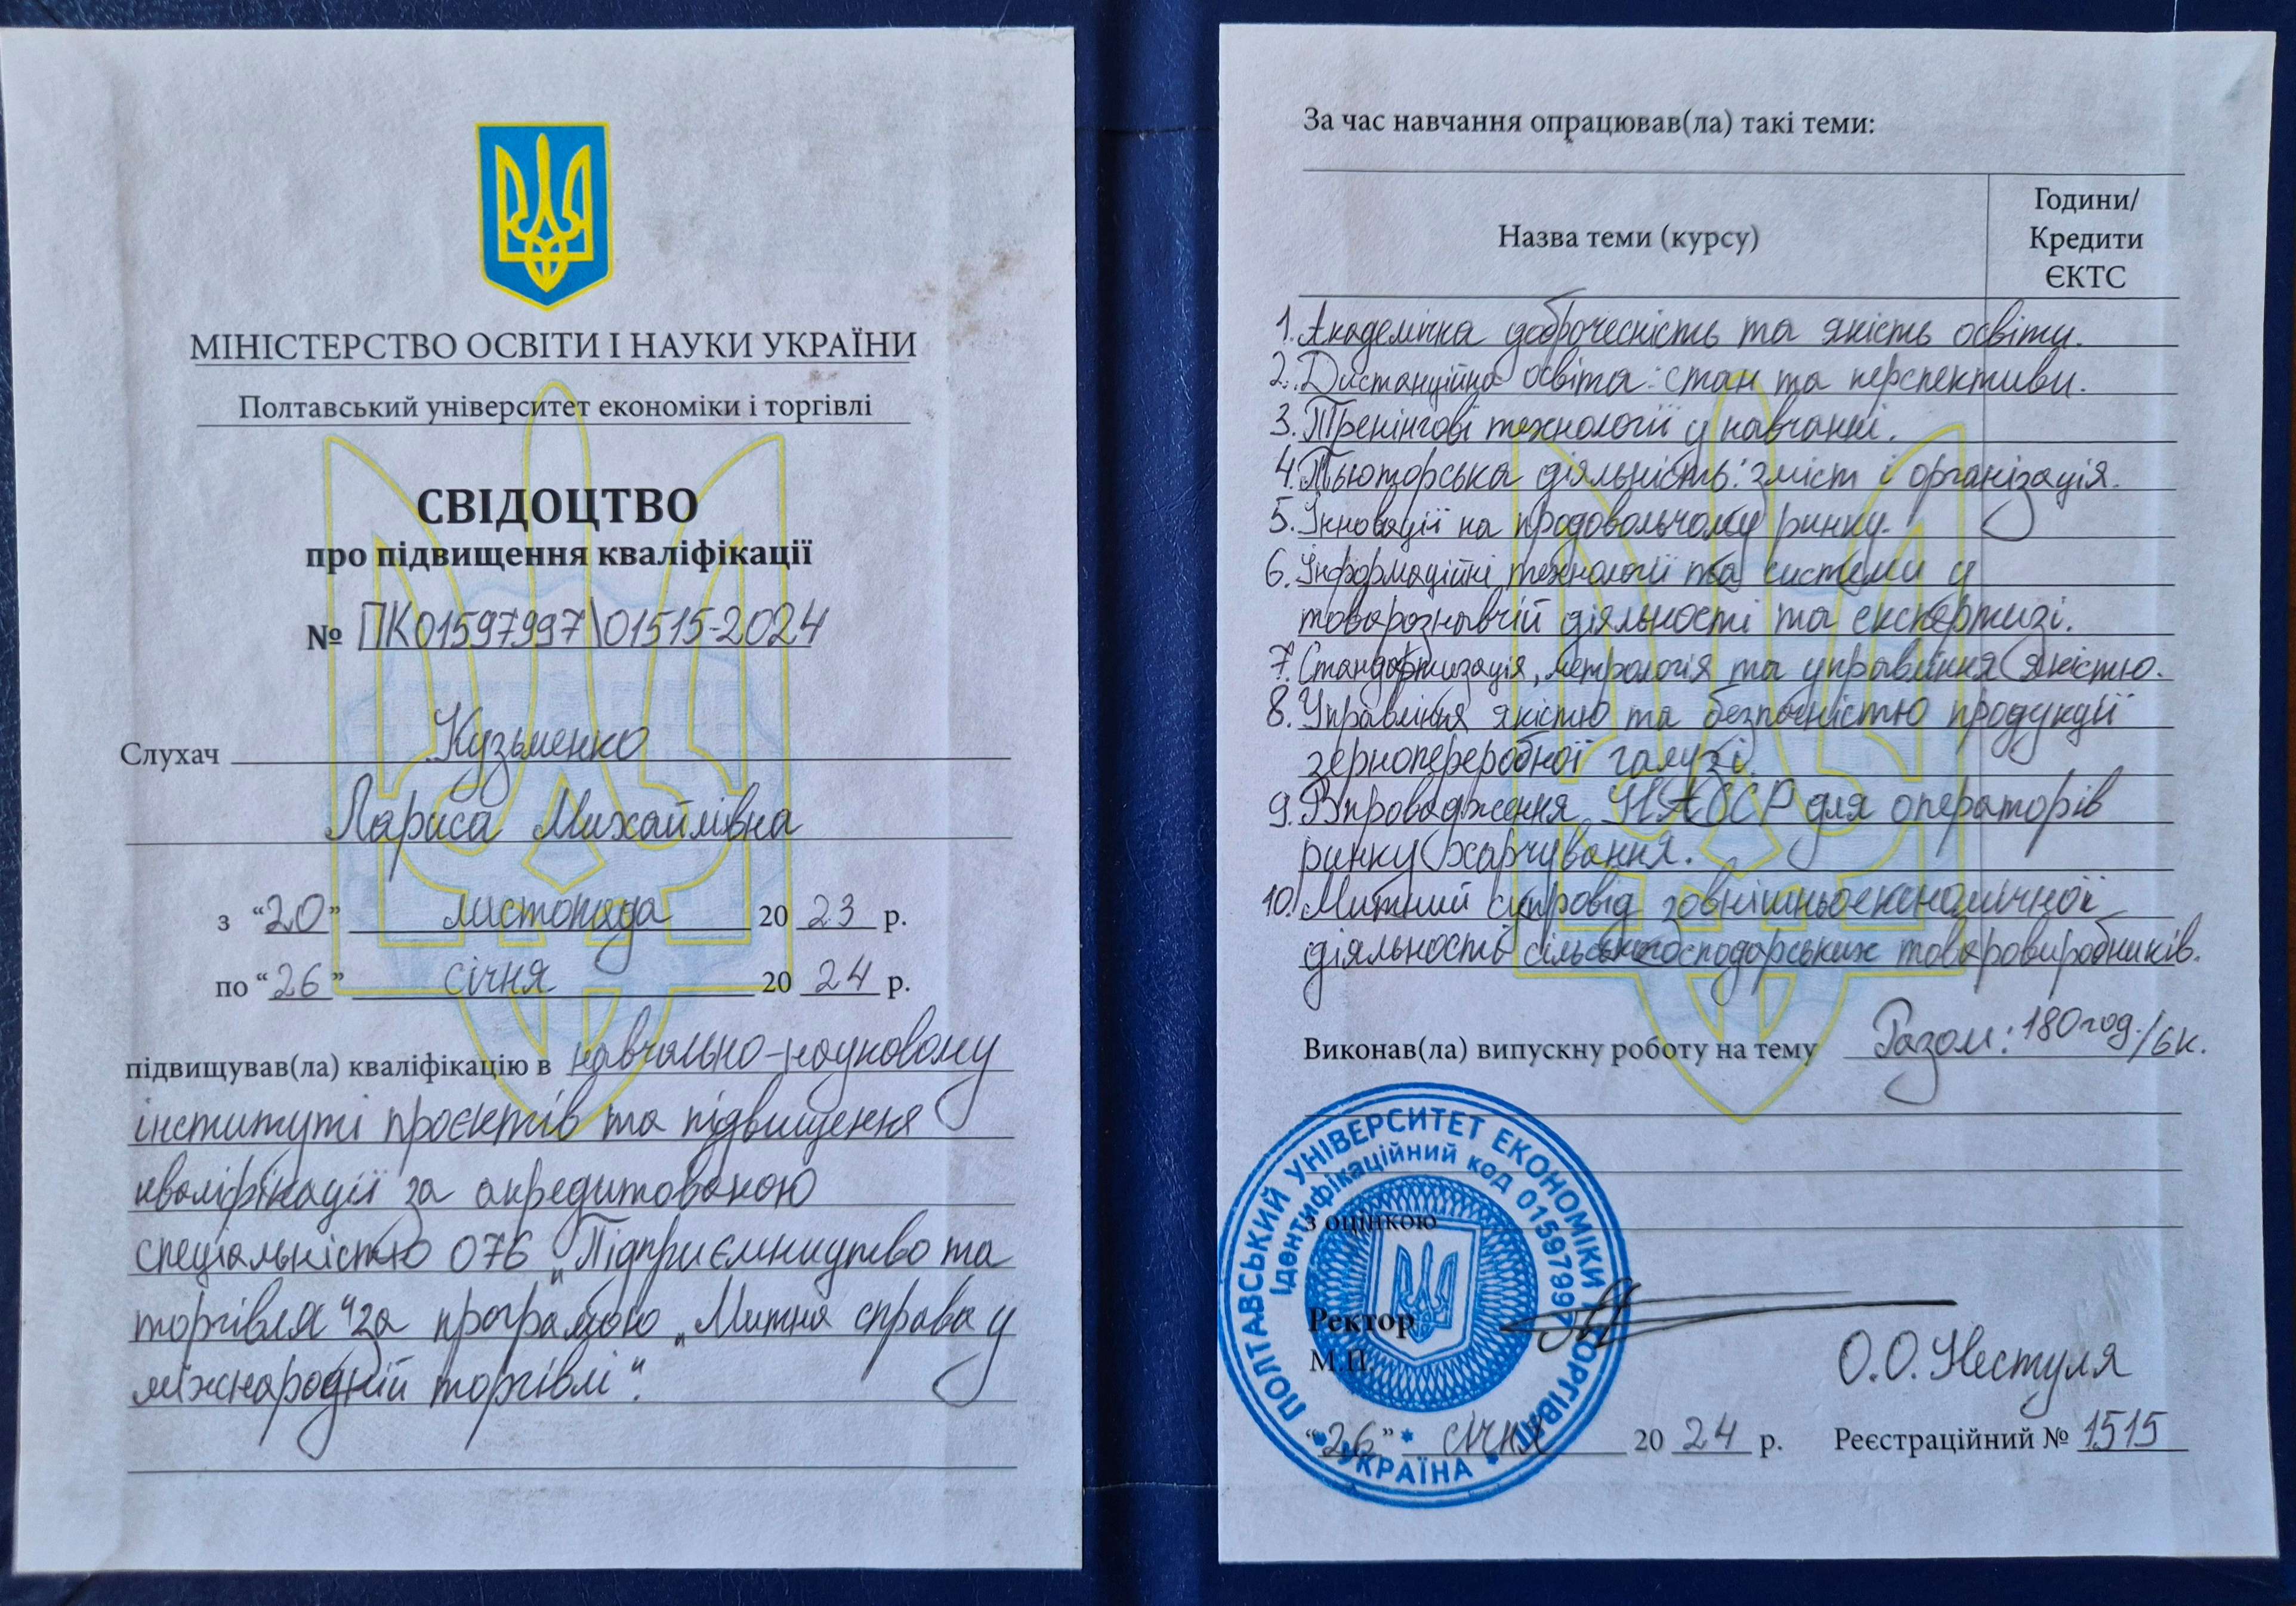 МІНІСТЕРСТВО ОСВІТИ І НАУКИ УКРАЇНИ
Полтавський університет економіки і торгівлі
СВІДОЦТВО
про підвищення кваліфікації
№ ПК01597997\01515-2024
Слухач Кузьменко
Лариса Михайлівна
з “20” листопада 20 23 р.
по “26” січня 20 24 р.
підвищував(ла) кваліфікацію в навчально-науковому
інституті проєктів та підвищення
кваліфікації за акредитованою
спеціальністю 076 „Підприємництво та
торгівля“ за програмою „Митна справа у
міжнародній торгівлі“.
За час навчання опрацював(ла) такі теми:
Назва теми (курсу)
Години/
Кредити
ЄКТС
1. Академічна доброчесність та якість освіти.
2. Дистанційна освіта: стан та перспективи.
3. Тренінгові технології у навчанні.
4. Тьюторська діяльність: зміст і організація.
5. Інновації на продовольчому ринку.
6. Інформаційні технології та системи у
товарознавчій діяльності та експертизі.
7. Стандартизація, метрологія та управління якістю.
8. Управління якістю та безпечністю продукції
зернопереробної галузі.
9. Впровадження НАССР для операторів
ринку харчування.
10. Митний супровід зовнішньоекономічної
діяльності сільськогосподарських товаровиробників.
Виконав(ла) випускну роботу на тему Разом: 180 год./6к.
з оцінкою
Ректор
М.П.
О.О. Нестуля
“26” січня 20 24 р. Реєстраційний № 1515
ПОЛТАВСЬКИЙ УНІВЕРСИТЕТ ЕКОНОМІКИ І ТОРГІВЛІ
* УКРАЇНА *
Ідентифікаційний код 01597997